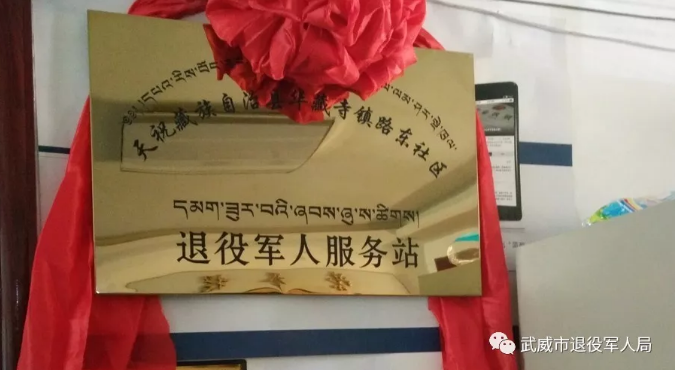 天祝藏族自治县华藏寺镇路东社区
དམག་ཟུར་བའི་ཞབས་ཞུ་ས་ཚིགས།
退役军人服务站
武威市退役军人局